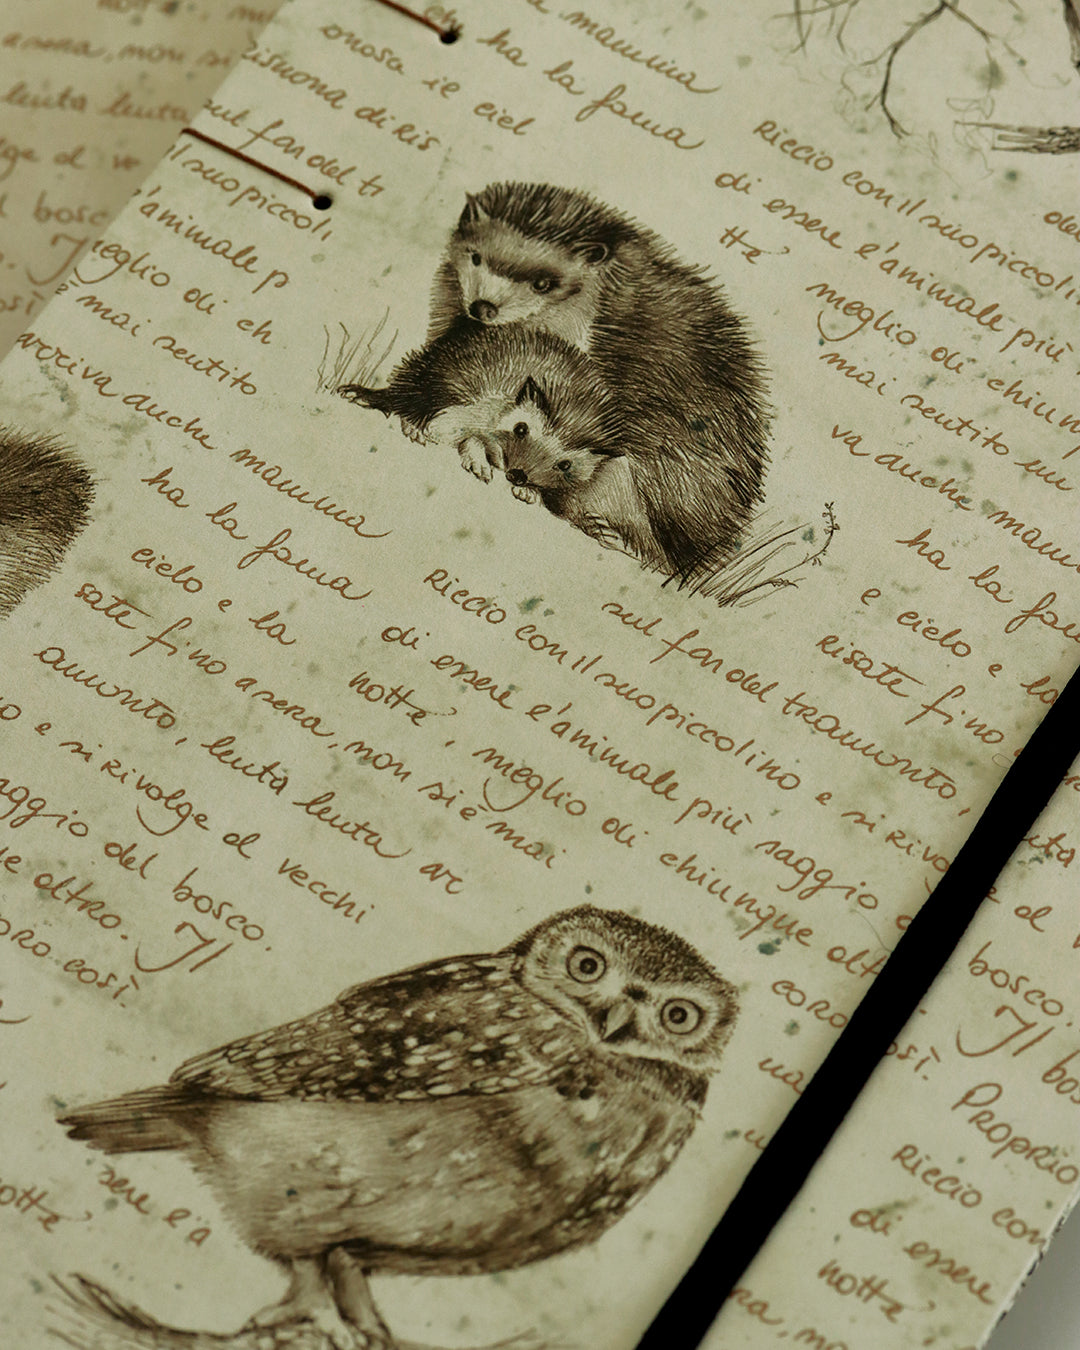 mamma
ha la fama
ciel
Riccio con il suo piccolin
di essere l'animale più
tte
meglio di chiun
mai sentito un
va anche mam
ha la fam
e cielo e la
risate fino
sul far del tramonto,
Il suo piccoli
l'animale p
meglio di ch
è mai sentito
arriva anche mamma
ha la fama
cielo e la
sate fino a sera, non si è mai
amonto, lenta lenta ar
o e si rivolge al vecchi
aggio del bosco.
ue altro. Il
oro così.
Riccio con il suo piccolino e si rivolge al v
di essere l'animale più saggio
notte, meglio di chiunque alt
coro
così.
bosco.
Il bos
Proprio
Riccio con
di essere
notte,
ra, no
sere l'a
notte